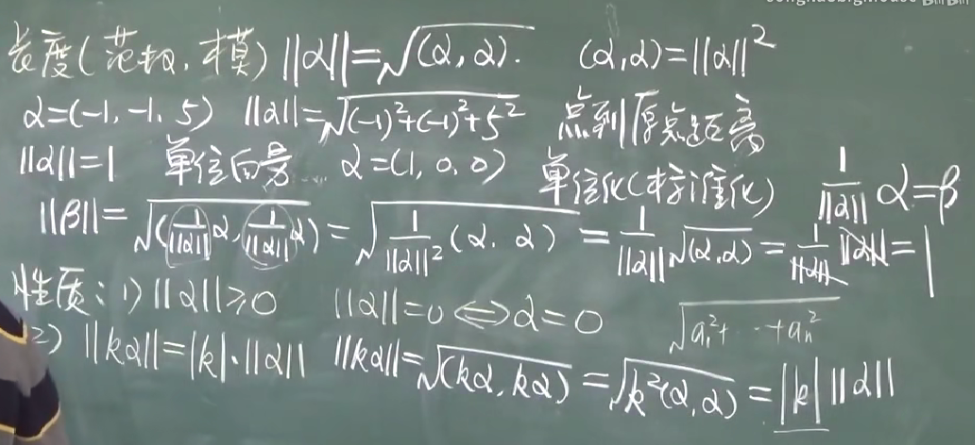 长度(范数.模) ||α||=√(α,α). (α,α)=||α||²
α=(-1,-1,5) ||α||=√(-1)²+(-1)²+5² 点到原点距离
||α||=1 单位向量 α=(1,0,0) 单位化(标准化) 1/||α|| α=β
||β||=√(1/||α|| α, 1/||α|| α) = √1/||α||² (α,α) = 1/||α|| √(α,α) = 1/||α|| ||α|| = 1
性质: 1) ||α||≥0 ||α||=0 ⟺ α=0 √a₁²+…+aₙ²
2) ||kα||=|k|·||α|| ||kα||=√(kα,kα) = √k²(α,α) = |k| ||α||